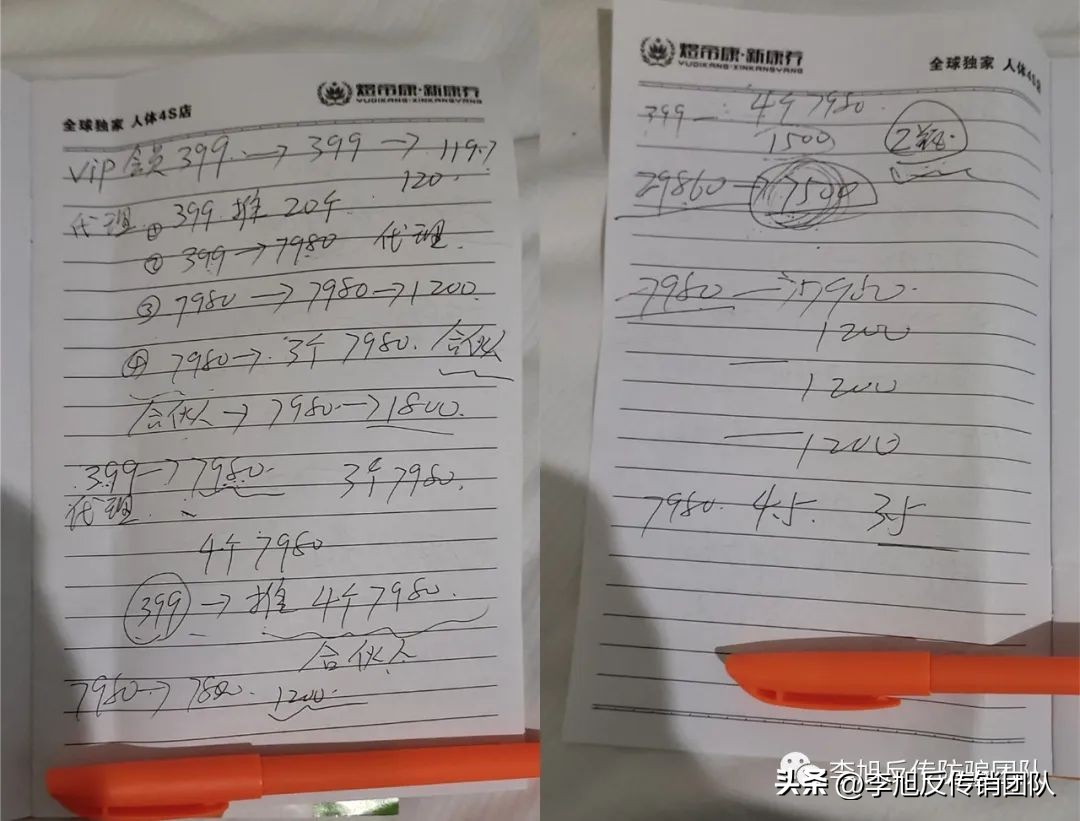 煜帝康·新康养
YUDIKANG·XINKANGYANG
全球独家 人体4S店
Vip 会员 399 → 399 → 119.7
120.
代理 ① 399 推 20个
② 399 → 7980 代理.
③ 7980 → 7980 → 1200.
④ 7980 → 3个 7980. 合伙人
合伙人 → 7980 → 1800.
399 → 7980. 3个 7980.
代理.
4个 7980
399 → 推 4个 7980.
合伙人
7980 → 7800. 1200.
煜帝康·新康养
YUDIKANG·XINKANGYANG
全球独家 人体4S店
399 — 4个 7980
1500
29860 → 7500
7980 → 7980.
1200
— 1200
— 1200
7980. 4.5. 3.5
李旭反传防骗团队
头条 @李旭反传销团队